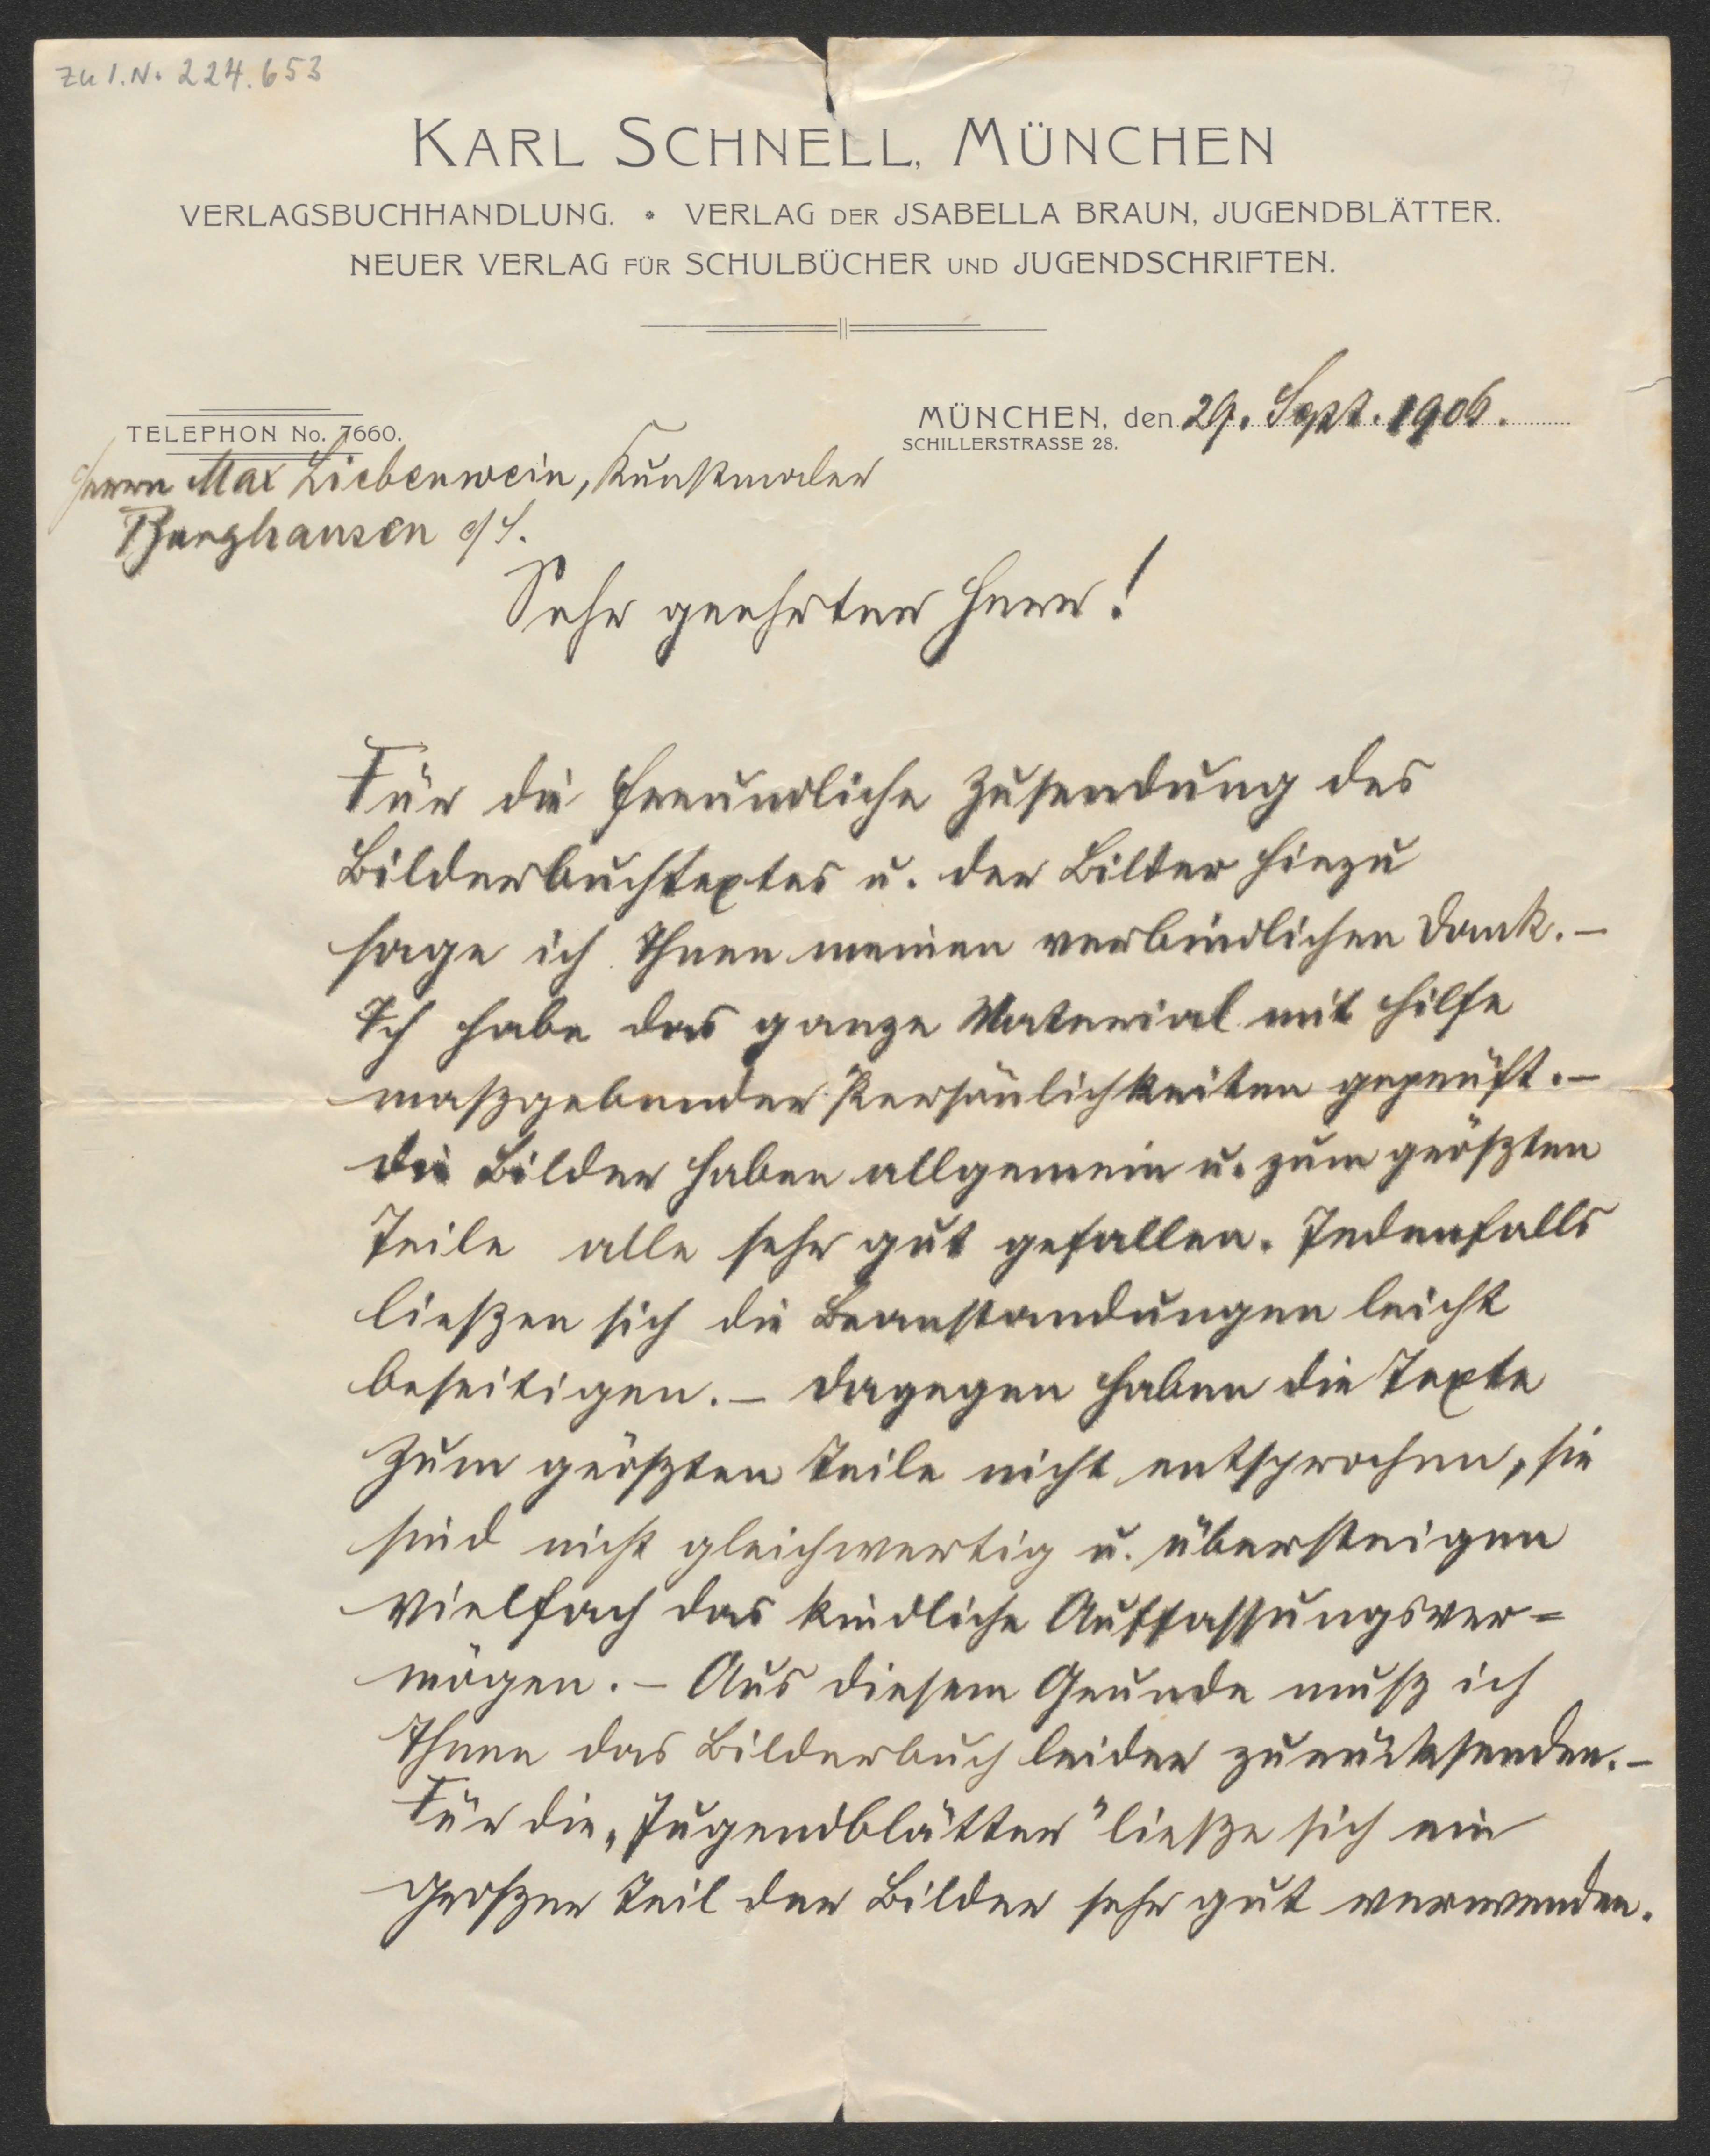 Zu I.N. 224.653
KARL SCHNELL, MÜNCHEN
VERLAGSBUCHHANDLUNG. • VERLAG DER JSABELLA BRAUN, JUGENDBLÄTTER.
NEUER VERLAG FÜR SCHULBÜCHER UND JUGENDSCHRIFTEN.
TELEPHON No. 7660.
MÜNCHEN, den 29. Sept. 1906.
SCHILLERSTRASSE 28.
Herrn Max Liebenwein, Kunstmaler
Burghausen a/S.
Sehr geehrter Herr!
Für die freundliche Zusendung des
Bilderbuchtextes u. der Bilder hiezu
sage ich Ihnen meinen verbindlichen Dank. –
Ich habe das ganze Material mit Hilfe
maßgebender Persönlichkeiten geprüft. –
Die Bilder haben allgemein u. zum größten
Teile alle sehr gut gefallen. Jedenfalls
ließen sich die Beanstandungen leicht
beseitigen. – Dagegen haben die Texte
zum größten Teile nicht entsprochen, sie
sind nicht gleichwertig u. übersteigen
vielfach das kindliche Auffassungsver=
mögen. – Aus diesem Grunde muß ich
Ihnen das Bilderbuch leider zurücksenden. –
Für die „Jugendblätter" ließe sich ein
großer Teil der Bilder sehr gut verwenden.